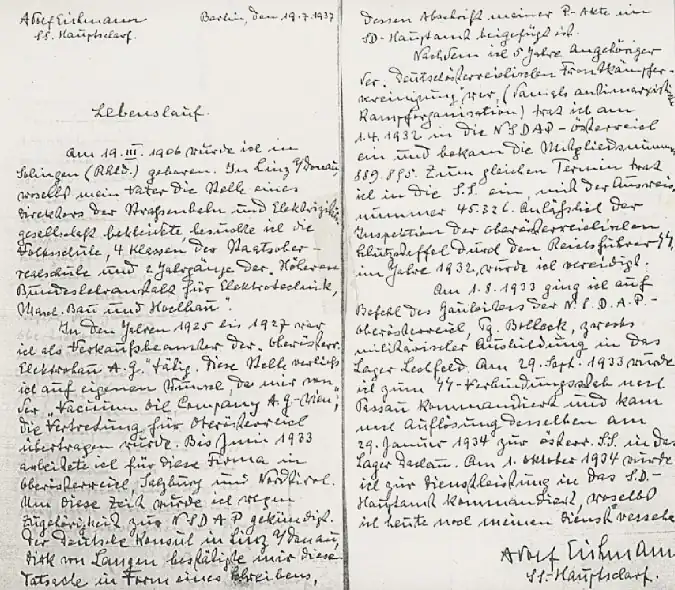 Adolf Eichmann
SS. Hauptscharf.
Berlin, den 19.7.1937
Lebenslauf.
Am 19. III. 1906 wurde ich in
Solingen (Rhld.) geboren. In Linz a/Donau
woselbst mein Vater die Stelle eines
Direktors der Strassenbahn und Elektrizitäts-
gesellschaft bekleidete besuchte ich die
Volksschule, 4 Klassen der Staatsober-
realschule und 2 Jahrgänge der "Höheren
Bundeslehranstalt für Elektrotechnik,
Masch. Bau und Hochbau".
In den Jahren 1925 bis 1927 war
ich als Verkaufsbeamter der "oberösterr.
Elektrobau A.G." tätig. Diese Stelle verliess
ich auf eigenen Wunsch, da mir von
der "Vacuum Oil Company A.G-Wien",
die Vertretung für Oberösterreich
übertragen wurde. Bis Juni 1933
arbeitete ich für diese Firma in
Oberösterreich, Salzburg und Nordtirol.
Um diese Zeit wurde ich wegen
Zugehörigkeit zur NSDAP gekündigt.
Der Deutsche Konsul in Linz a/Donau
Dirk von Langen bestätigte mir diese
Tatsache in Form eines Schreibens,
dessen Abschrift meiner P-Akte im
SD-Hauptamt beigefügt ist.
Nachdem ich 5 Jahre Angehöriger
der "Deutschösterreichischen Frontkämpfer-
vereinigung" war, (damals antimarxistische
Kampforganisation) trat ich am
1.4.1932 in die NSDAP-Österreich
ein und bekam die Mitgliedsnummer
889.895. Zum gleichen Termin trat
ich in die SS. ein, mit der Ausweis-
nummer 45.326. Anlässlich der
Inspektion der oberösterreichischen
Schutzstaffel durch den Reichsführer SS
im Jahre 1932, wurde ich vereidigt.
Am 1.8.1933 ging ich auf
Befehl des Gauleiters der N.S.D.A.P.-
Oberösterreich, Pg. Bolleck, zwecks
militärischer Ausbildung in das
Lager Lechfeld. Am 29. Sept. 1933 wurde
ich zum SS-Verbindungsstab nach
Passau kommandiert und kam
nach Auflösung desselben am
29. Januar 1934 zur österr. SS. in das
Lager Dachau. Am 1. Oktober 1934 wurde
ich zur Dienstleistung in das S.D.-
Hauptamt kommandiert, woselbst
ich heute noch meinen Dienst versehe.
Adolf Eichmann
SS-Hauptscharf.